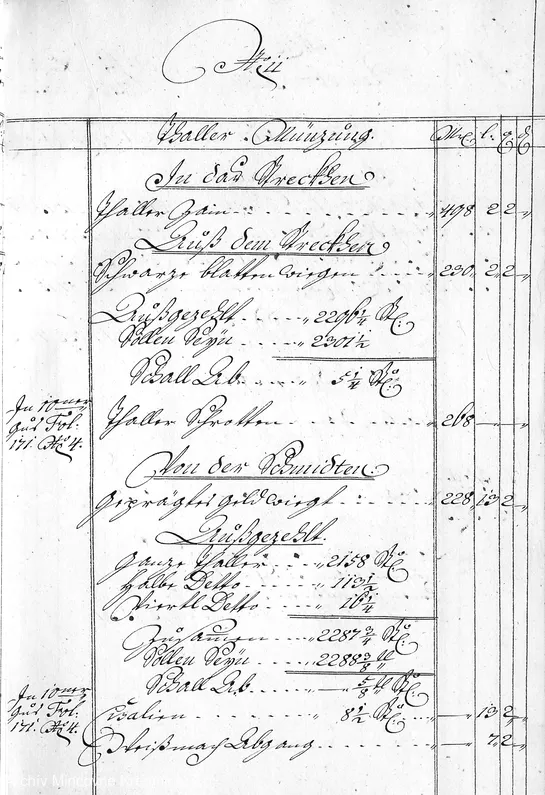 No. 11
Thaller Münzung. Mrk l. q. d
In das Streckhen
Thaller Zain 498 2 2 "
Auß dem Streckhen
Schwarze blatten wiegen 230 2 2 "
Außgezehlt " 2296 1/4 St:
Sollen Seyn " 2301 1/2
Schall Ab 5 1/4 St:
In 10ner
Guß Fol.
171. No 4.
Thaller Schrotten 268 — —
Von der Schmidten:
Geprägtes Geld wiegt 228 13 2 "
Außgezehlt.
Ganze Thaller " 2158 St:
Halbe Detto " 113 1/2
Viertl Detto " 16 1/4
Zusamen " 2287 3/4 St:
Sollen Seyn " 2288 3/8 "
Schall Ab — 5/8 " St:
In 10ner
Guß Fol.
171. No 4.
" 8 1/2 St: — 13 2 "
Weißmach Abgang " — 7 2 "
Archiv Mincovne Kremnica